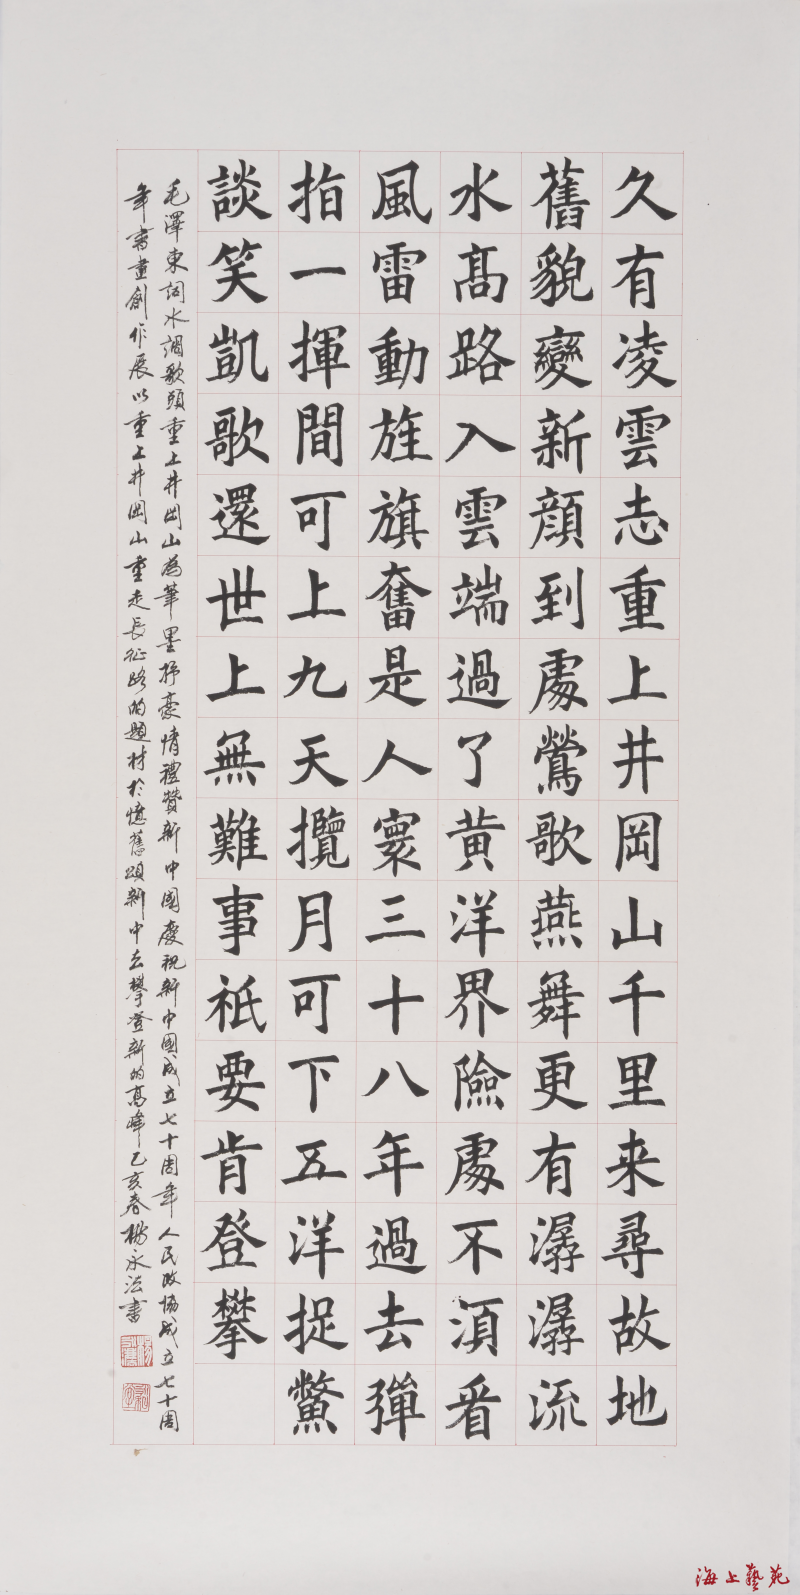 久有凌雲志重上井岡山千里来尋故地
舊貌變新顏到處鶯歌燕舞更有潺潺流
水高路入雲端過了黄洋界險處不湏看
風雷動旌旗奮是人寰三十八年過去彈
指一揮間可上九天攬月可下五洋捉鱉
談笑凱歌還世上無難事祇要肯登攀
毛澤東詞水調歌頭重上井岡山為筆墨抒豪情禮贊新中國慶祝新中國成立七十周年人民政協成立七十周
年書畫創作展以重上井岡山重走長征路的題材於憶舊頌新中去攀登新的高峰己亥春楊永法書
海上藝苑